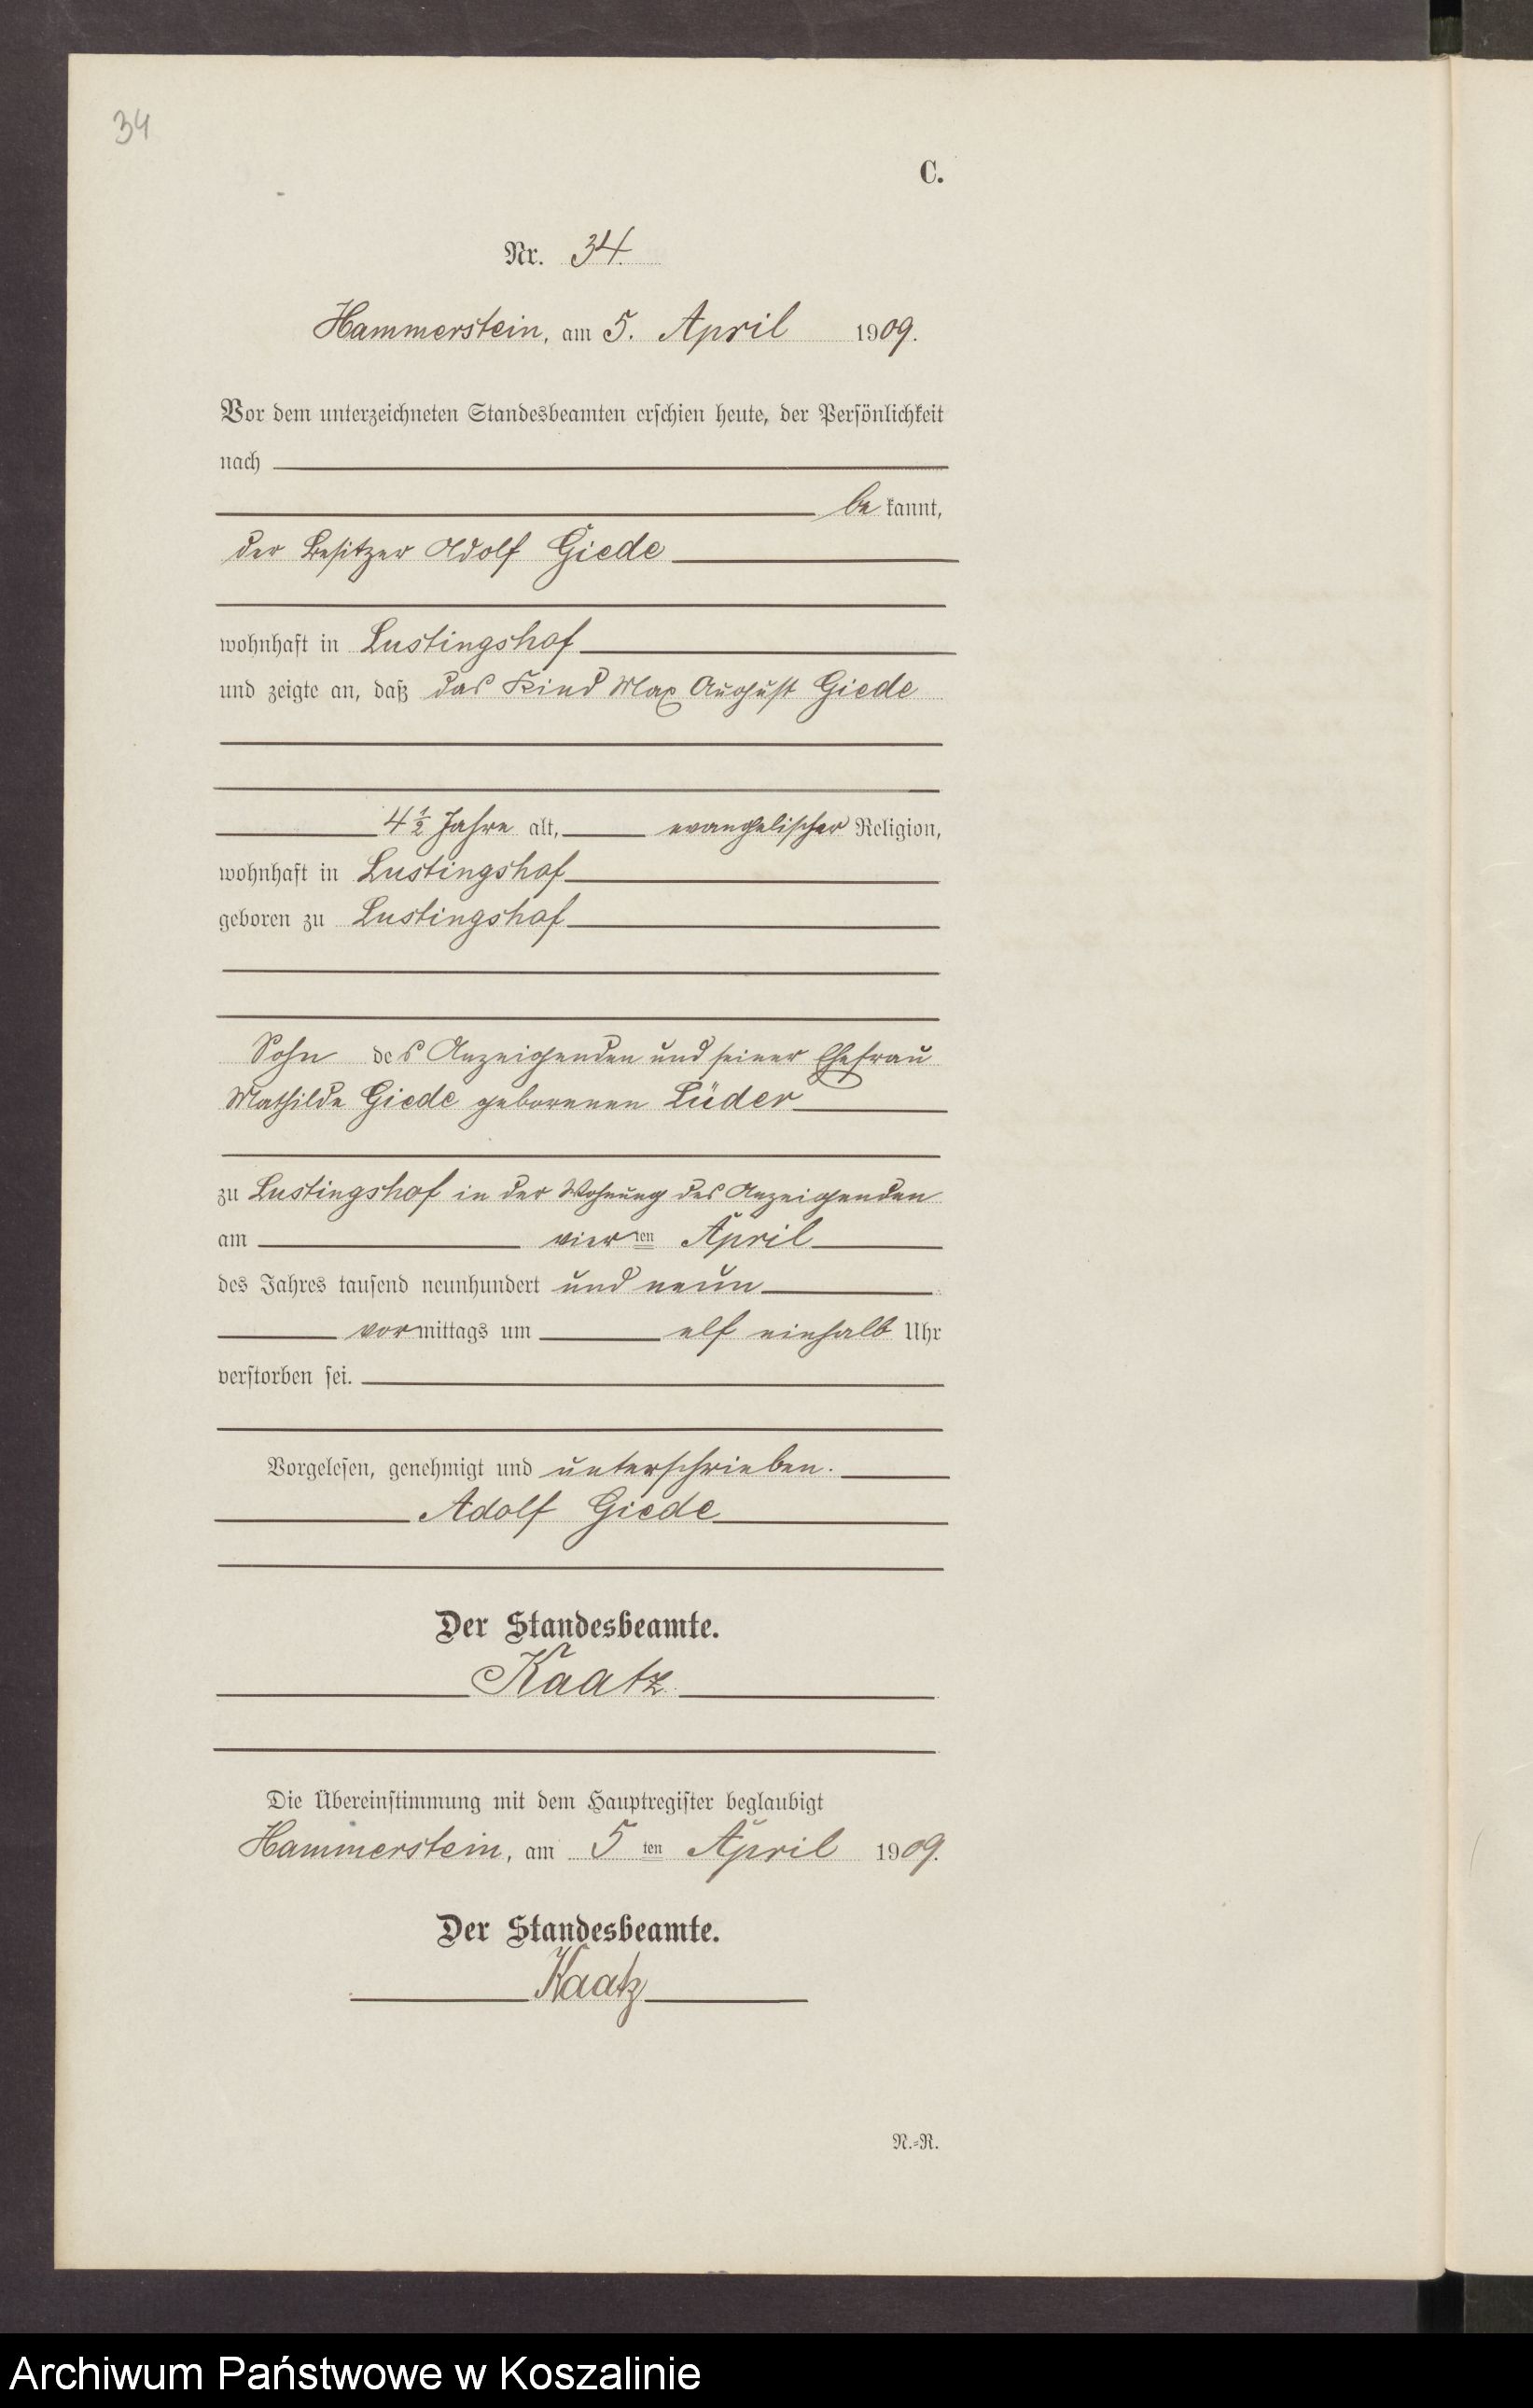 34
C.
Nr. 34.
Hammerstein, am 5. April 1909.
Vor dem unterzeichneten Standesbeamten erschien heute, der Persönlichkeit
nach
be kannt,
der Besitzer Adolf Giede
wohnhaft in Lustingshof
und zeigte an, daß das Kind Max August Giede
4 1/2 Jahre alt, evangelischer Religion,
wohnhaft in Lustingshof
geboren zu Lustingshof
Sohn des Anzeigenden und seiner Ehefrau
Mathilde Giede geborenen Lüder
zu Lustingshof in der Wohnung des Anzeigenden
am vier ten April
des Jahres tausend neunhundert und neun
vormittags um elf einhalb Uhr
verstorben sei.
Vorgelesen, genehmigt und unterschrieben.
Adolf Giede
Der Standesbeamte.
Kaatz.
Die Übereinstimmung mit dem Hauptregister beglaubigt
Hammerstein, am 5 ten April 1909.
Der Standesbeamte.
Kaatz
N.=R.
Archiwum Państwowe w Koszalinie